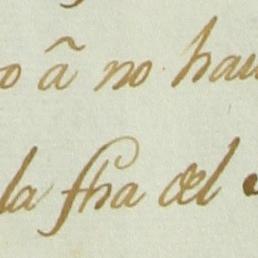 o ã no hau
la fha del